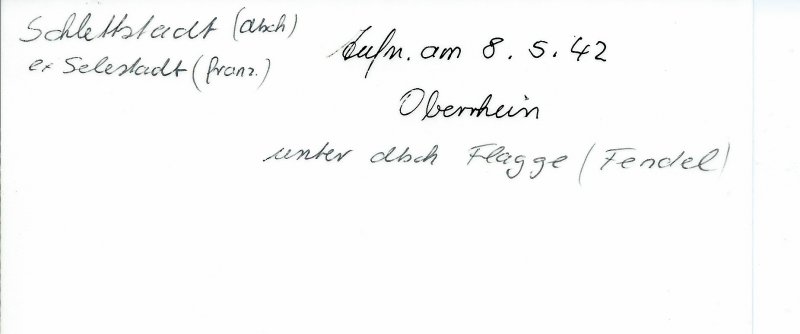 Schlettstadt (dtsch)
ex Selestadt (franz.)
Aufn. am 8. 5. 42
Oberrhein
unter dtsch Flagge (Fendel)